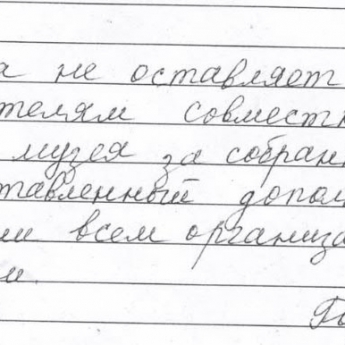 а не оставляет
телям совместн
музея за собран
тавленный допол
ми всем организа
м.
Го